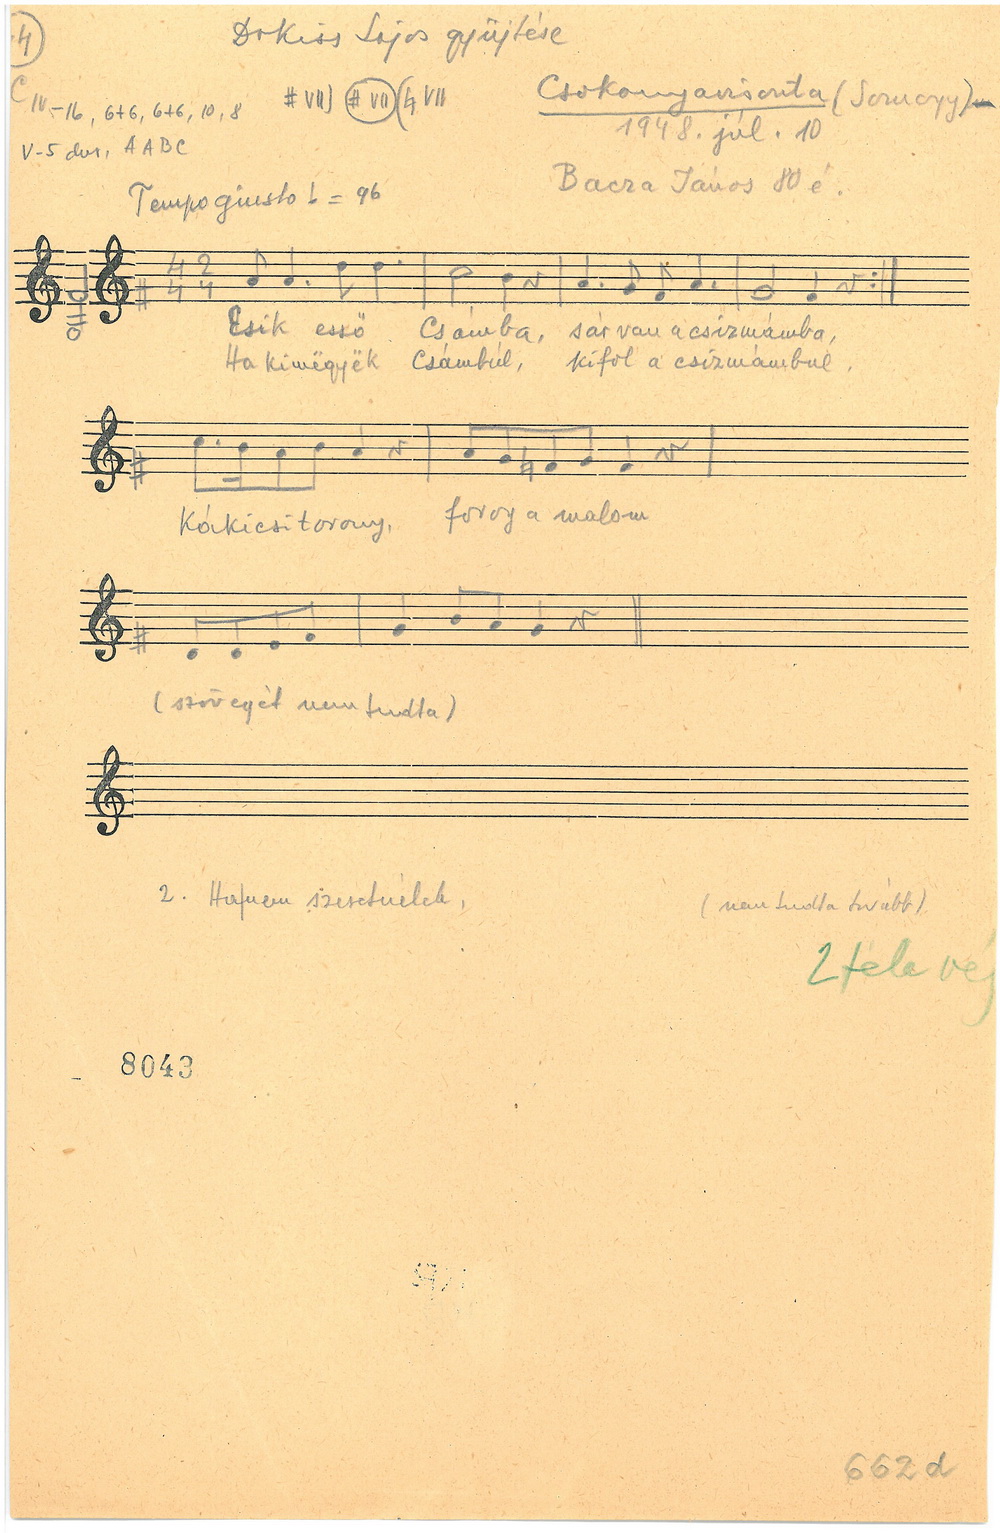 4
Dr Kiss Lajos gyűjtése
C IV.-16, 6+6, 6+6, 10, 8
# VII) (# VII) (♮ VII
Csokonyavisonta (Somogy)
1948. júl. 10
V-5 dur, A A B C
Bacza János 80 é.
Tempo giusto ♩ = 96
4 2
4 4
Esik esső Csámba, sár van a csizmámba,
Ha kimëgyëk Csámbúl, kifol a csizmámbul.
Kákicsi torony, forog a malom
(szövegét nem tudta)
2. Ha nem szeretnélek, (nem tudta tovább)
2 féle
8043
662 d